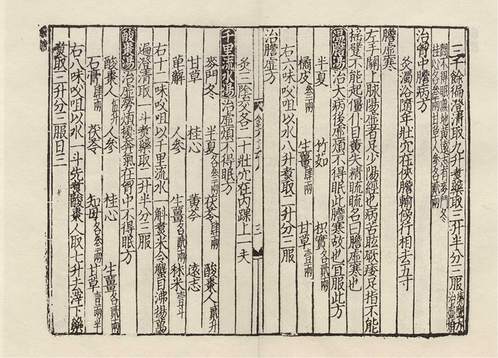 三千餘徧澄清取九升煑藥取三升半分三服
治胷中膽病方
灸濁浴隨年壯穴在俠膽輸傍行相去五寸
膽虛寒
左手關上脉陽虛者足少陽經也病苦眩厥痿足指不能
揺躄不能起僵仆目黃失精䀮䀮名曰膽虛寒也
温膽湯治大病後虛煩不得眠此膽寒故也宜服此方
半夏 竹如 枳實各貳兩
橘皮叁兩 生薑肆兩 甘草壹兩
右六味㕮咀以水八升煑取二升分三服
治膽虛方
三
灸三陰交各二十壯穴在内踝上一夫
千里流水湯治虛煩不得眠方
麥門冬 半夏各叁兩 茯苓肆兩 酸棗人貳升
甘草 桂心 黃芩 遠志
萆薢 人參 生薑各貳兩 秫米壹升
右十二味㕮咀以千里流水一斛煑米令蟹目沸揚萬
遍澄清取一斗煑藥取二升半分三服
酸棗湯治虛勞煩擾奔氣在胷中不得眠方
酸棗人伍升 人參 桂心 生薑各貳兩
石膏肆兩 茯苓 知母各叁兩 甘草壹兩半
右八味㕮咀以水一斗先煑酸棗人取七升去滓下藥
煑取三升分三服日三